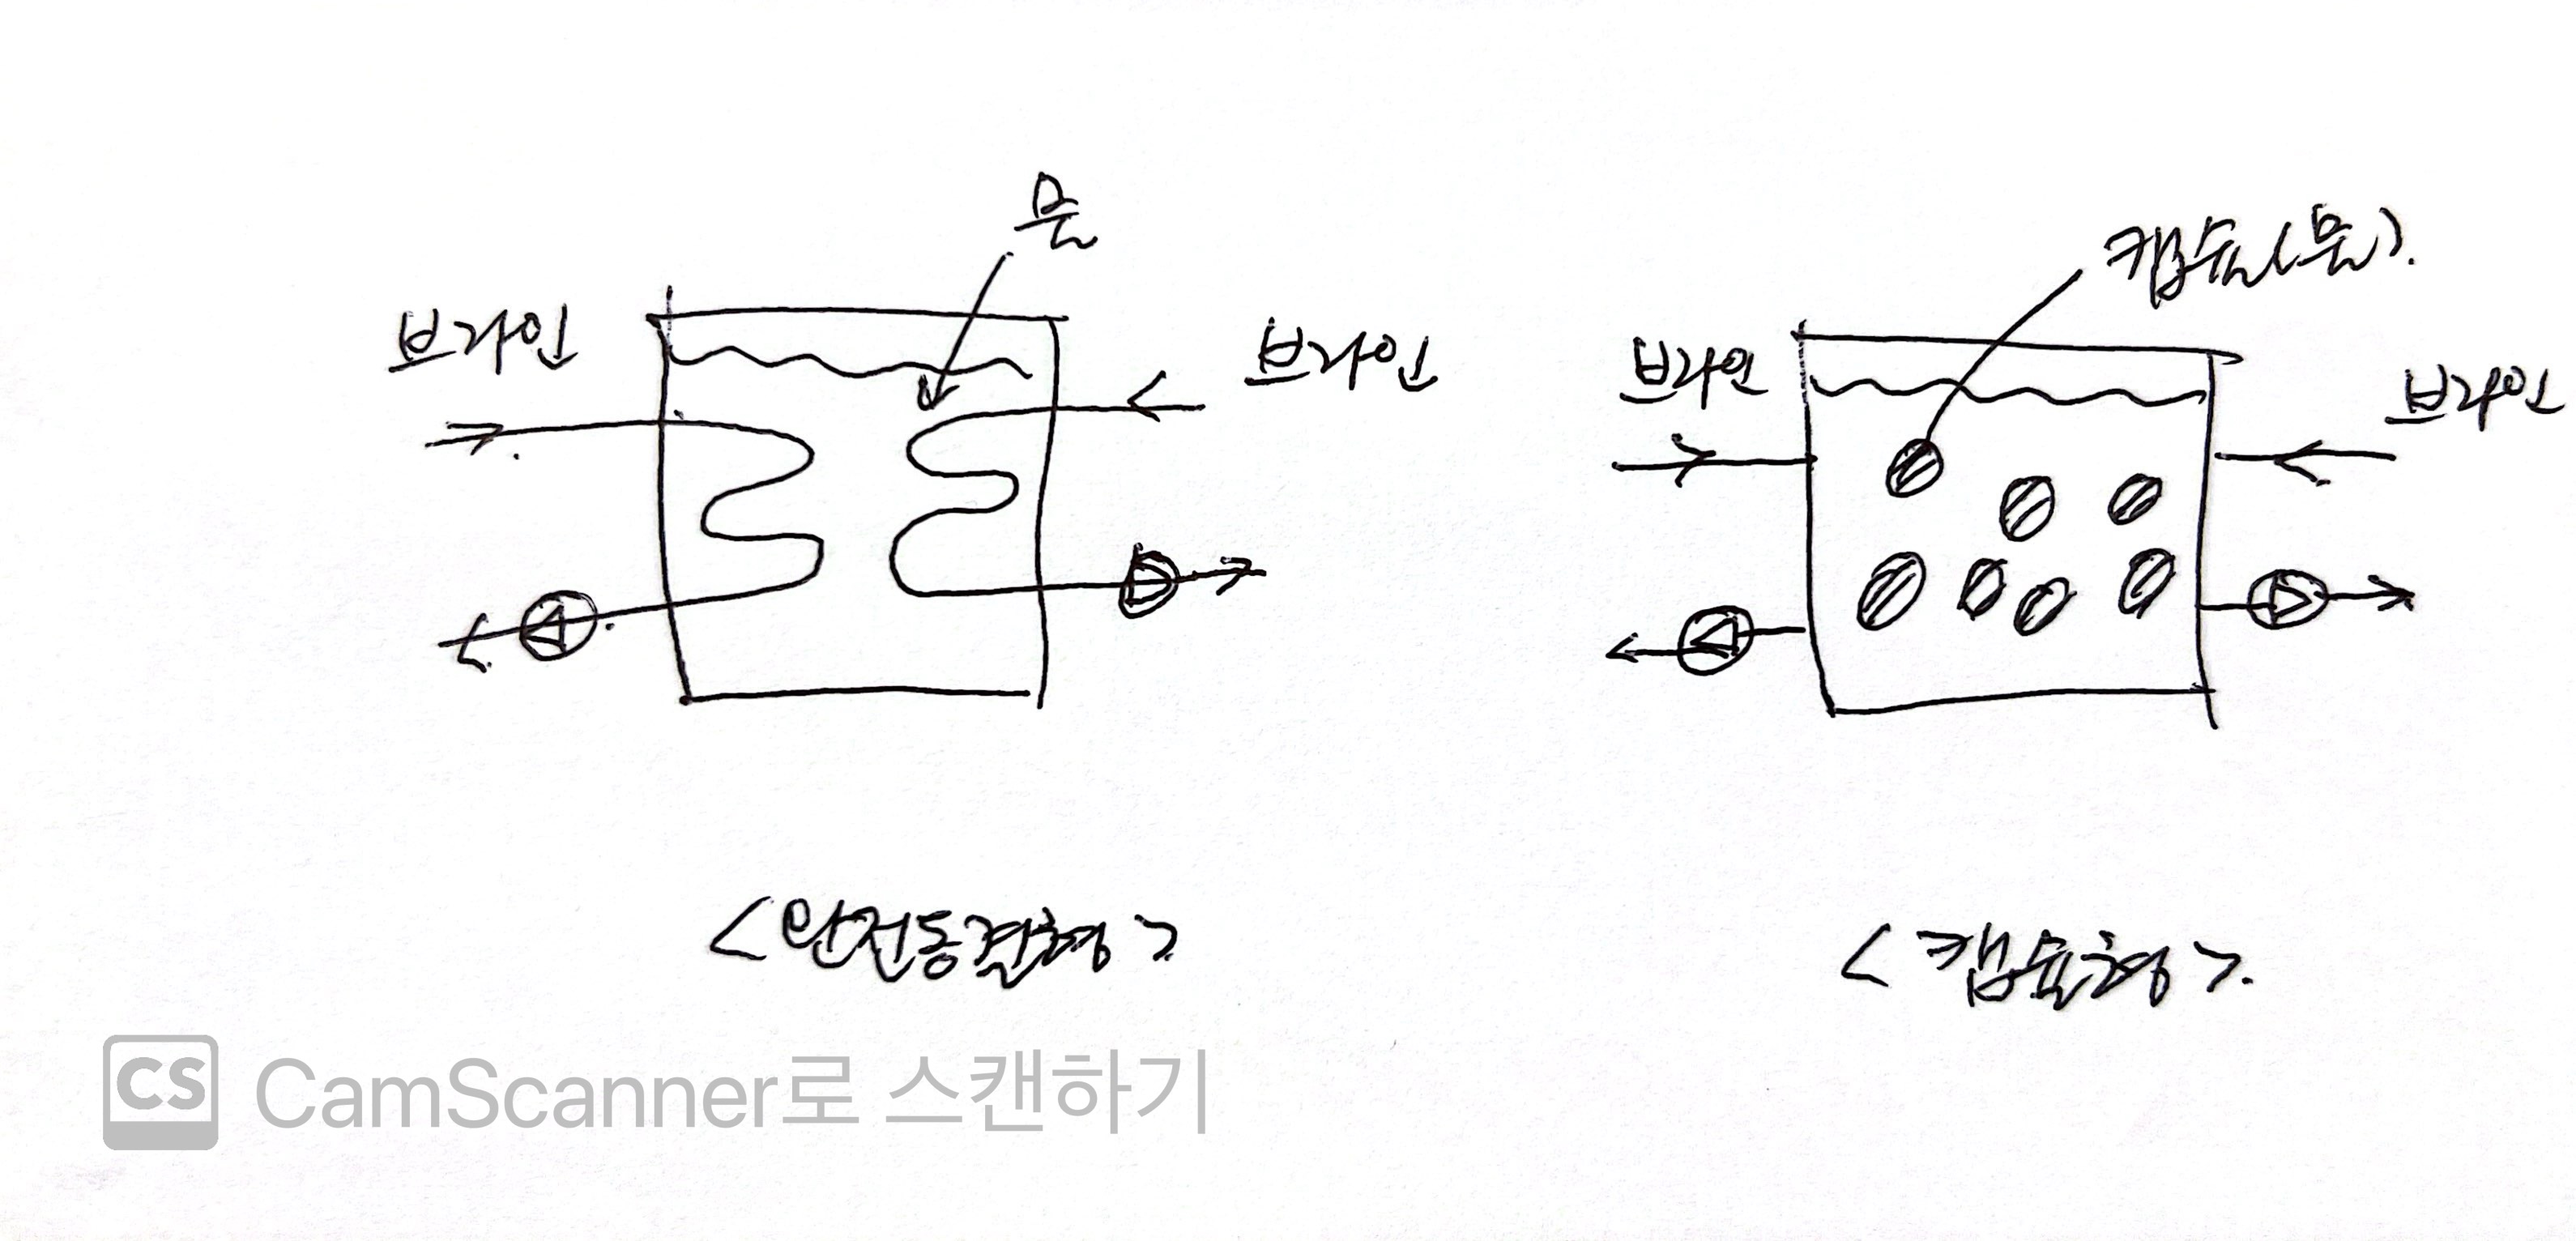 물
캡슐(물).
브라인
브라인
브라인
브라인
<완전동결형>
<캡슐형>.
CS CamScanner로 스캔하기